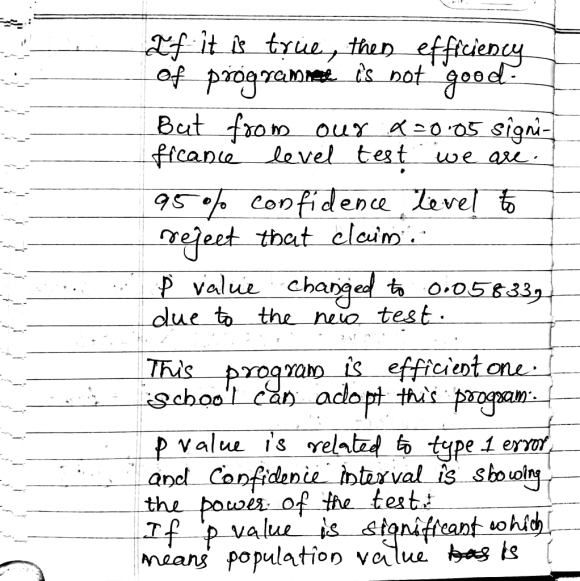 If it is true, then efficiency
of program is not good.
But from our α=0.05 signi-
ficance level test we are.
95% confidence level to
reject that claim.
P value changed to 0.05833,
due to the new test.
This program is efficient one.
School can adopt this program.
p value is related to type 1 error
and Confidence interval is showing
the power of the test.
If p value is significant which
means population value is